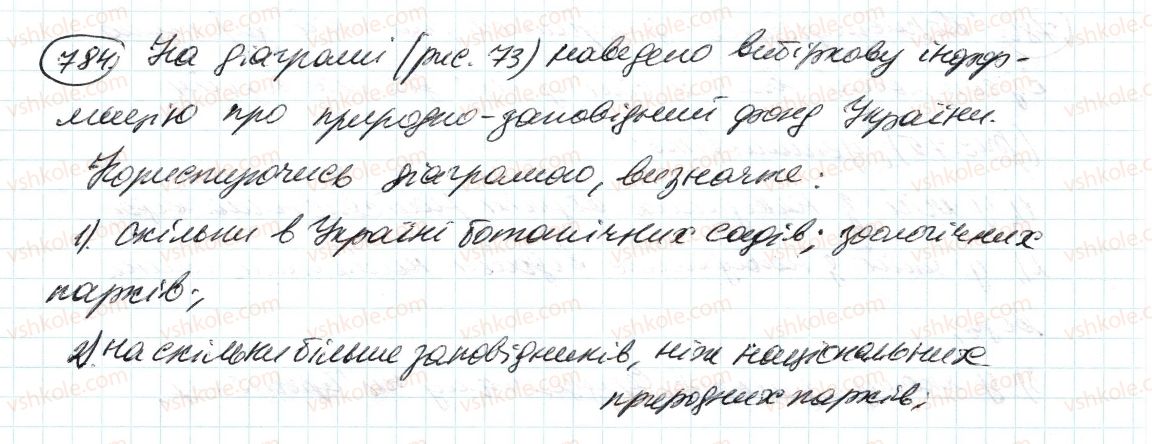 784. На діаграмі (рис. 73) наведено вибіркову інфор-
мацію про природно-заповідний фонд України.
Користуючись діаграмою, визначте:
1) скільки в Україні ботанічних садів; зоологічних
парків;
2) на скільки більше заповідників, ніж національних
природних парків;